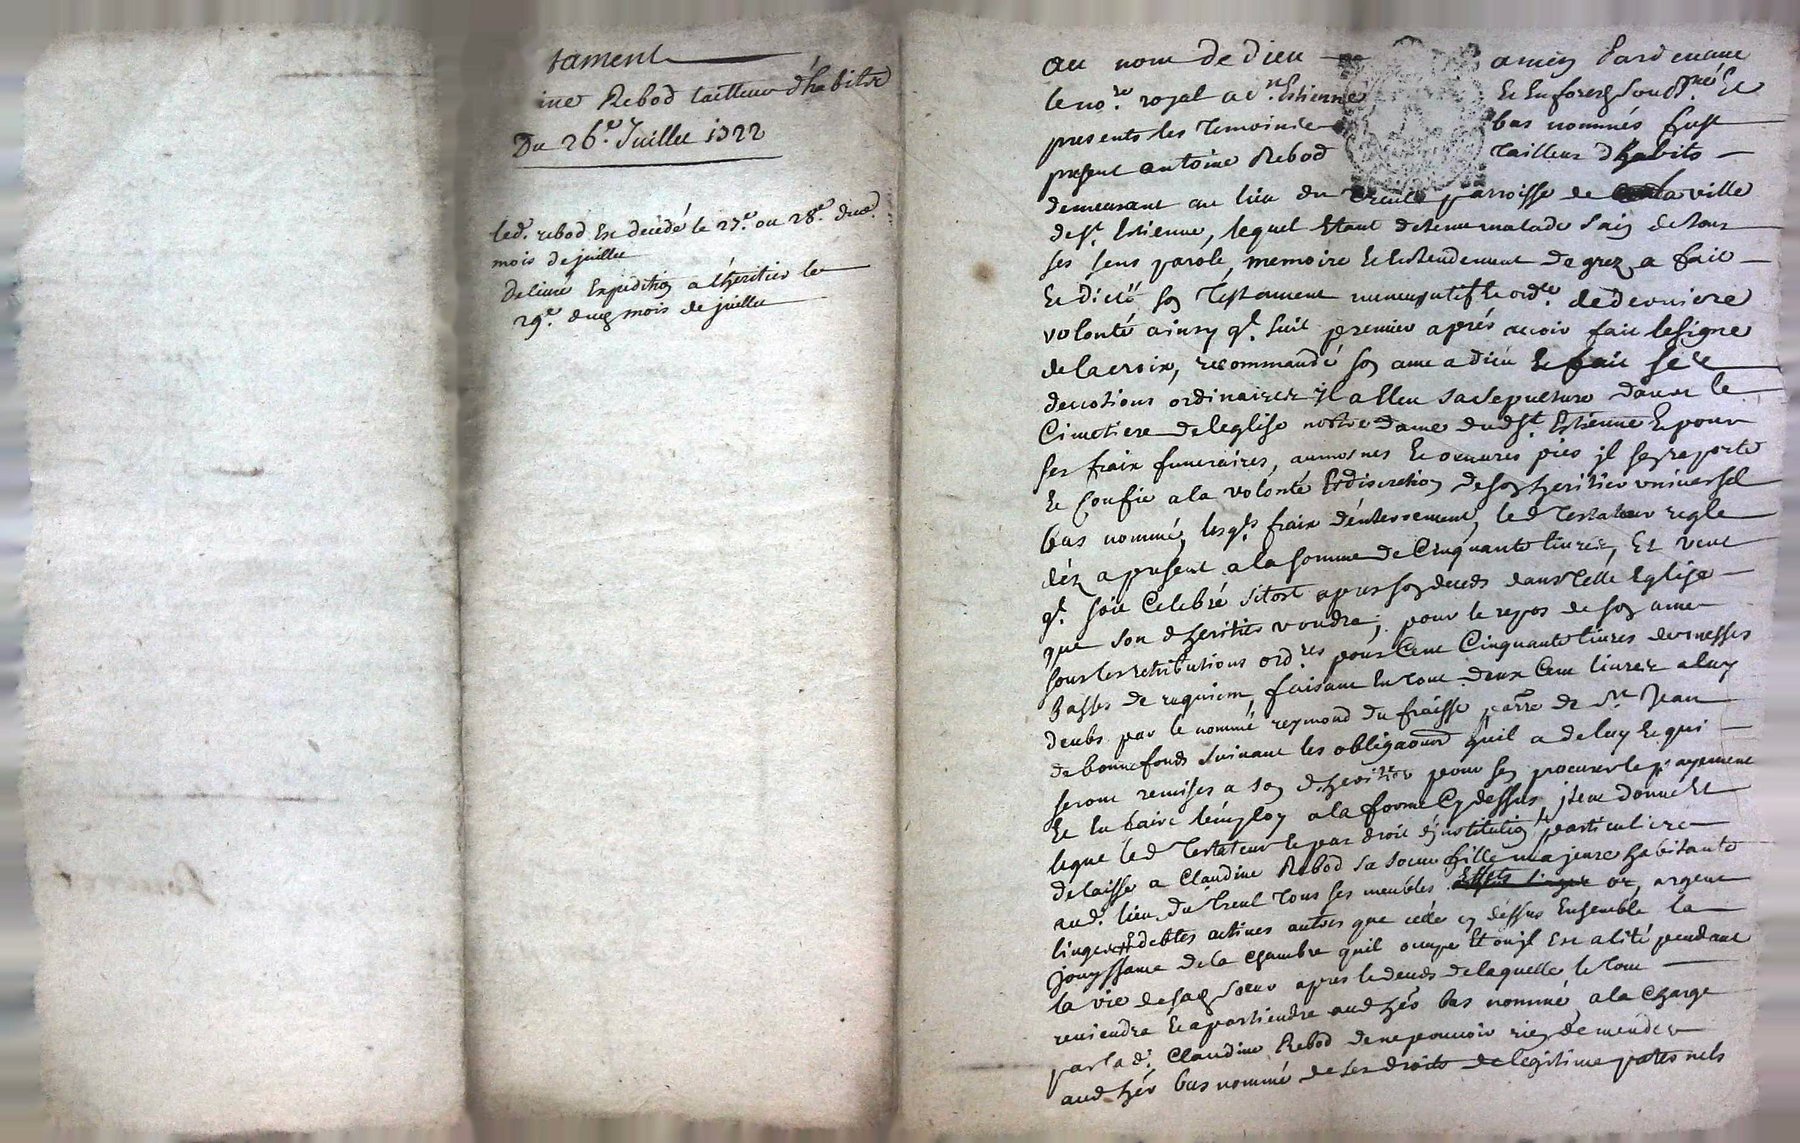 tament
ine Rebod tailleur d'habits
Du 26.e Juillet 1722
led. rebod Est décédé le 27.e ou 28.e dud.
mois de juillet
Delivré Expedition a l'heritier le
29.e dud mois de juillet
au nom de dieu amen Pardevant
le no.re royal a St. Estienne Et En forest sousig.né Et
presents les temoins bas nommés fust
present antoine Rebod tailleur d'habits
demeurant au lieu du Treuil parroisse de la ville
de St. Estienne, lequel Etant detenu malade sain de tous
ses sens parole, memoire Et Entendement de grez a fait
Et dicté son Testament nuncupatif Et ord.e de derniere
volonté ainsy q.l suit premier aprés avoir fait le signe
de la croix, recommandé son ame a dieu Et fait ses
devotions ordinaires il a Eleu sa sepulture dans le
Cimetiere de l'eglise nostre dame dud St. Estienne Et pour
ses fraix funeraires, aumosnes Et oeuvres pies il s'en raporte
Et Confie a la volonté Et discretion de son heritier universel
bas nommé, lesq.ls fraix d'enterrement, led Testateur regle
déz a present a la somme de Cinquante livres, Et veut
q.l soit Celebré sitost aprés son deceds dans telle Eglise
que son d heritier voudra, pour le repos de son ame
sous les retributions ord.res pour Cent Cinquante livres de messes
basses de requiem, faisant En tout deux Cent livres a luy
deubs par le nommé reymond du fraisse parre de St. Jean
de bonnefonds suivant les obligaons qu'il a de luy Et qui
seront remises a son d heritier pour s'en procurer le payement
Et En faire l'employ a la forme Cy dessus, item donne Et
legue led Testateur Et par droit d'institution particuliere
delaisse a Claudine Rebod sa soeur fille majeure habitante
aud. lieu du Treuil tous ses meubles or, argent
linges Et debtes actives autres que celle cy dessus Ensemble la
jouyssance de la chambre qu'il occupe Et ou il Est alité pendant
la vie de sad soeur apres le deceds de laquelle le tout
reviendra Et apartiendra aud her bas nommé a la charge
par lad. Claudine Rebod de ne pouvoir rien demender
aud her bas nommé de ses droits de legitime paternels